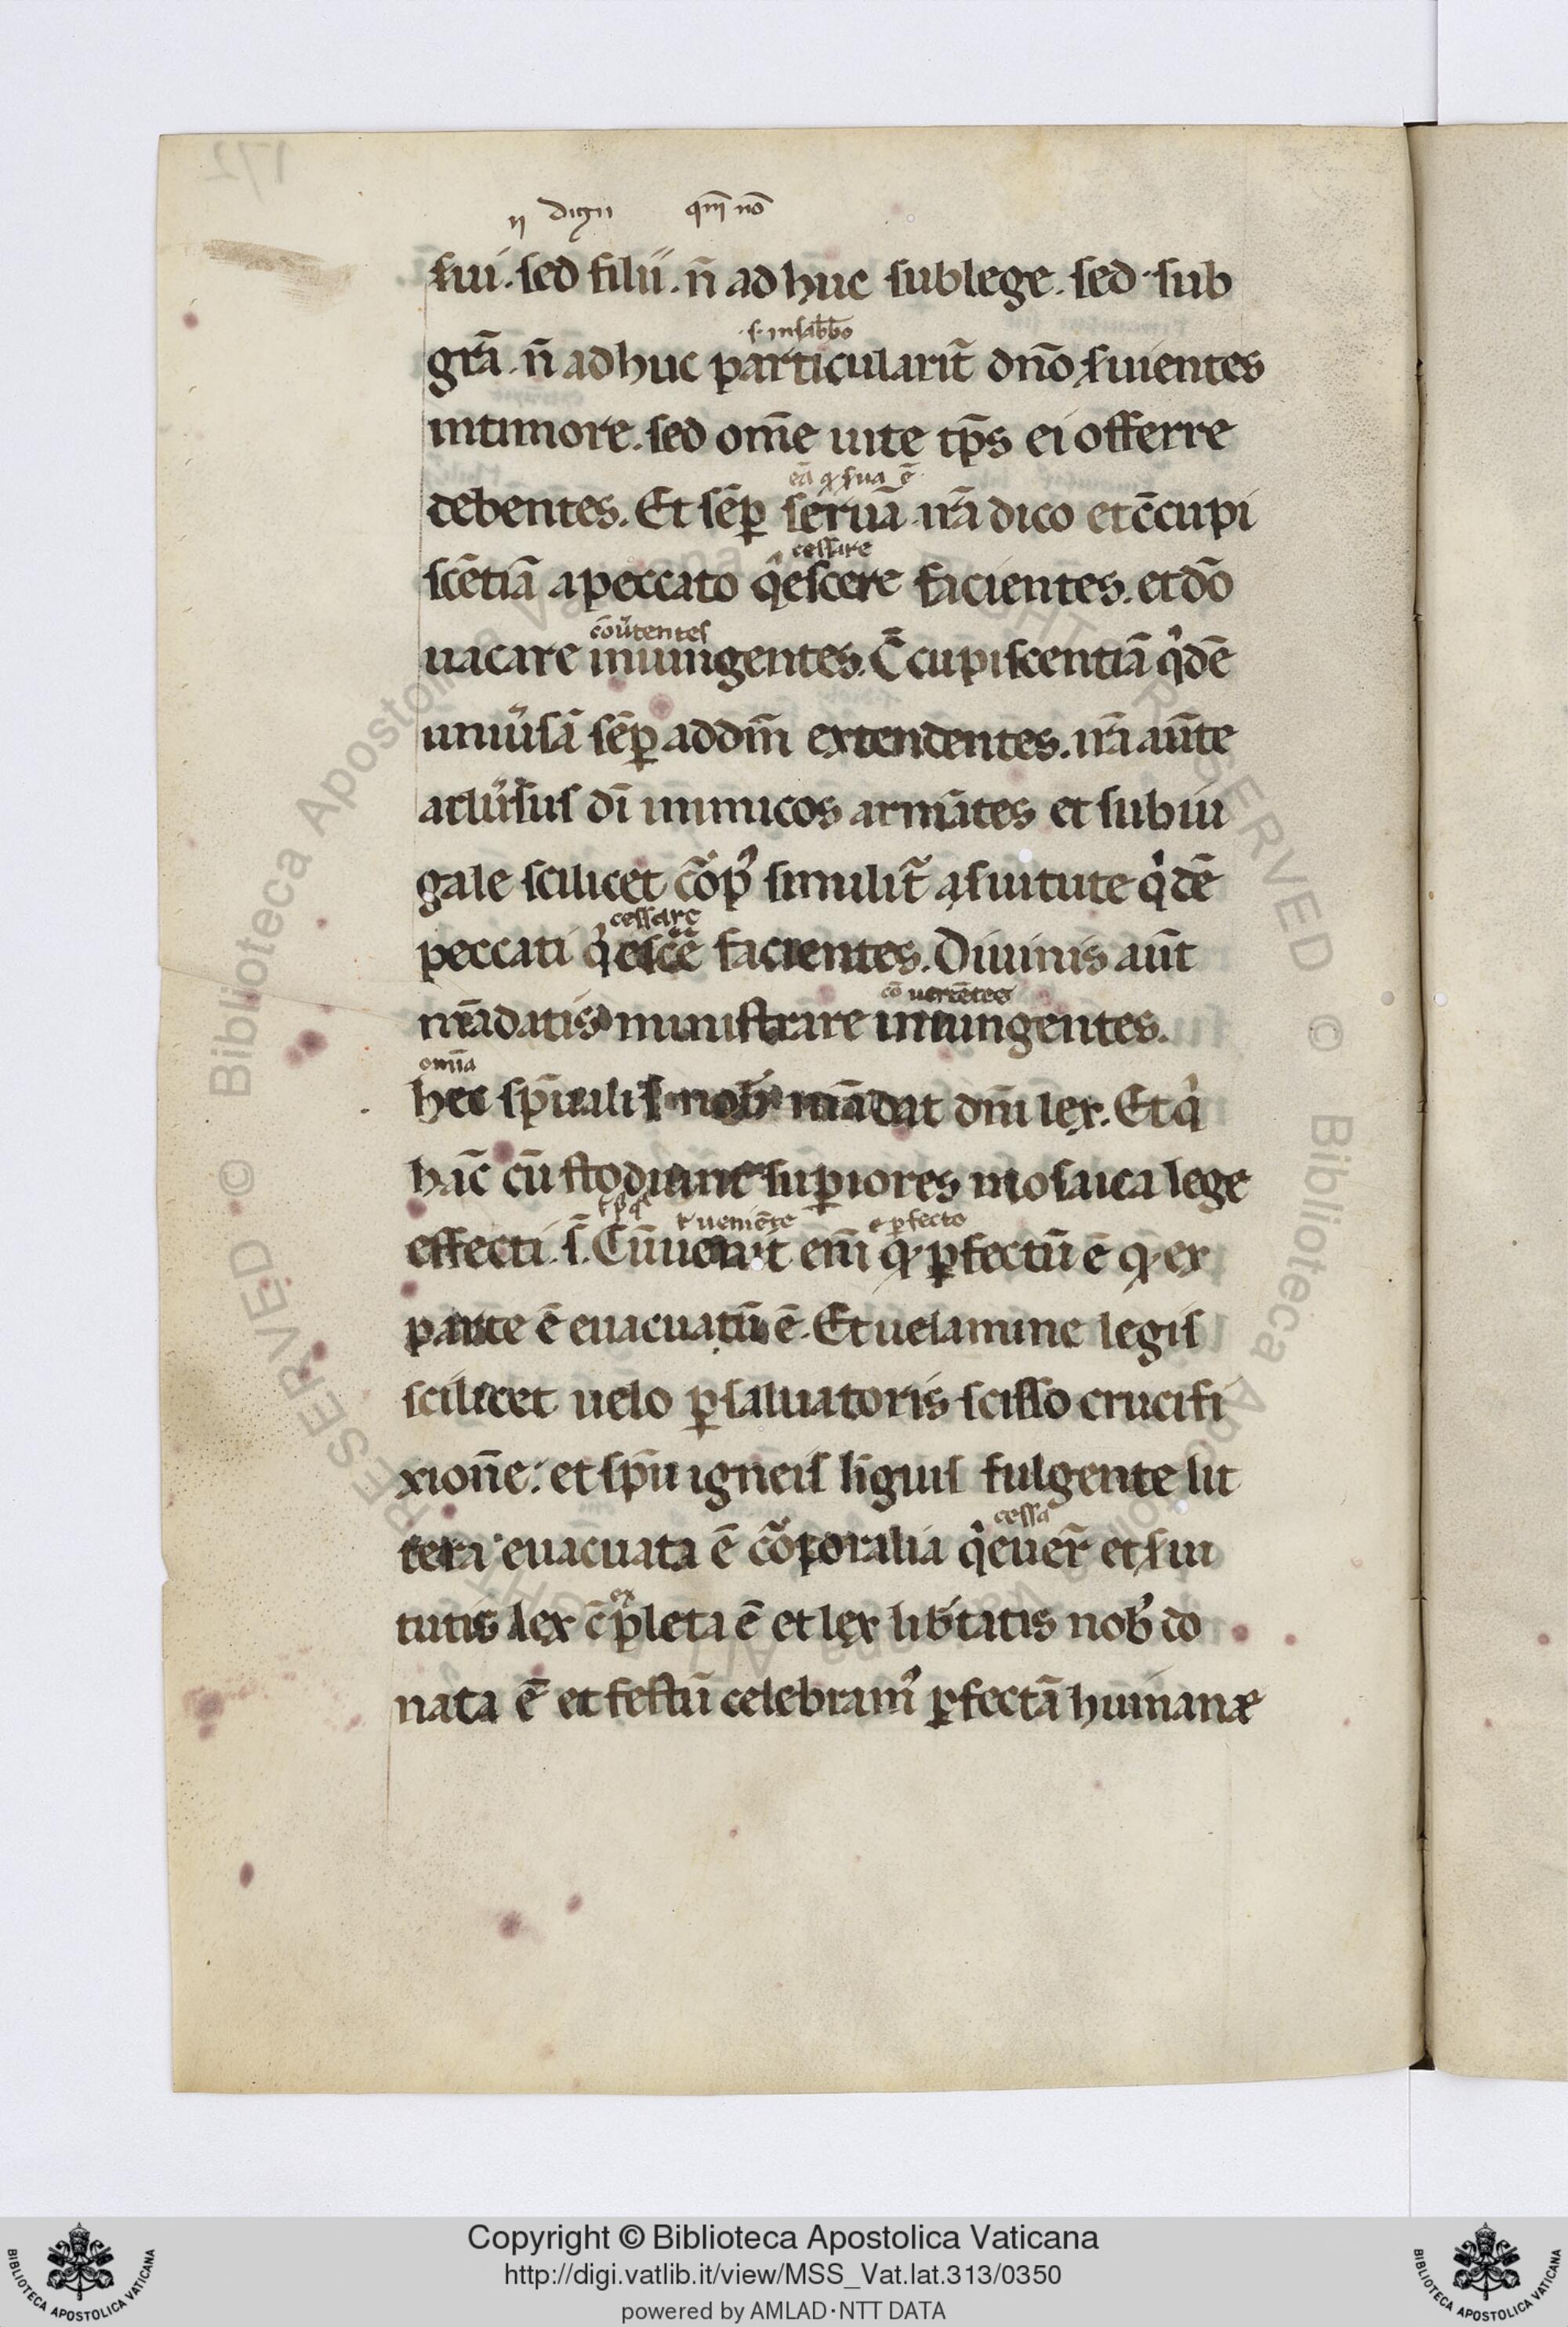 172
ij digni qm̅ no̅
ſui. sed filii. n̅ adhuc sublege. sed sub
.ſ. inſabb̅o
gr̅a. n̅ adhuc particularit̅ dn̅o ſuientes
intimore. sed om̅e uite tp̅s ei offerre
ea̅ q̨ ſua e̅
debentes. Et se̅ꝑ serua̅ ira̅ dico et c̅cupi
cessare
sce̅tia̅ apeccato q̓escere facientes. et d̅o
co̅u̓tentes
uacare iniungentes. C̅cupiscentia̅ q̓de̅
uniu̓ſa̅ se̅ꝑ addm̅ extendentes. ira̅ au̅te
adu̓ſus di̅ inimicos arma̅tes et subiu
gale scilicet co̅p̓ similit̅ aſuitute q̓de̅
cessare
peccati q̓esc̅e̅ facientes. Diuinis au̅t
co̅uerte̅tes
ma̅datis ministrare iniungentes.
om̅ia
hec sp̅ualiſ nob̓ ma̅dat dn̅i lex. Et q̓
ha̅c cu̅ſtodiunt suꝑiores mosaica lege
t uenie̅te ꝑfecto
effecti. ſ̅. Cu̅ uenit eni̅ q̨ ꝑfectu̅ e̅ q̨ ex
parte e̅ euacuatu̅ e̅. Et uelamine legis
scilicet uelo ꝑ saluatoris scisso crucifi
xion̅e. et sp̅u igneis li̅guis fulgente lit
cessa
tera euacuata e̅ co̅poralia q̓euer̅ et ſui
ex
tutis lex c̅pleta e̅ et lex lib̓tatis nob̓ do
nata e̅ et festu̅ celebram̓ ꝑfecta̅ humanæ
Copyright © Biblioteca Apostolica Vaticana
http://digi.vatlib.it/view/MSS_Vat.lat.313/0350
powered by AMLAD·NTT DATA
BIBLIOTECA APOSTOLICA VATICANA
BIBLIOTECA APOSTOLICA VATICANA